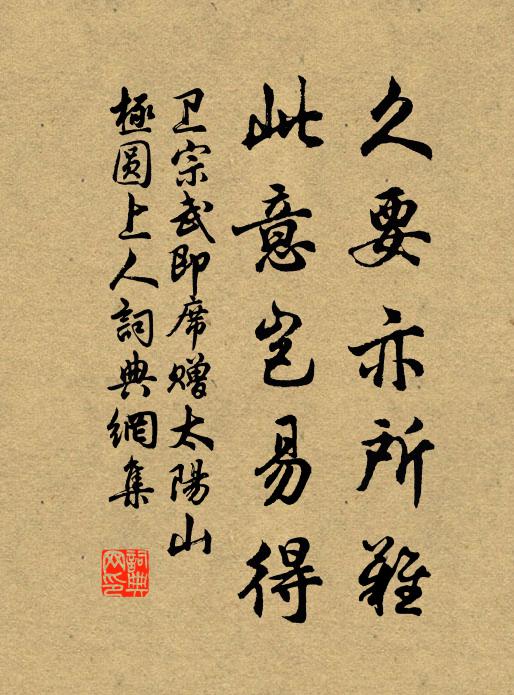 久要亦所難
此意岂易得
卫宗武即席赠太陽山
極圆上人詞典網集
詞典
网印